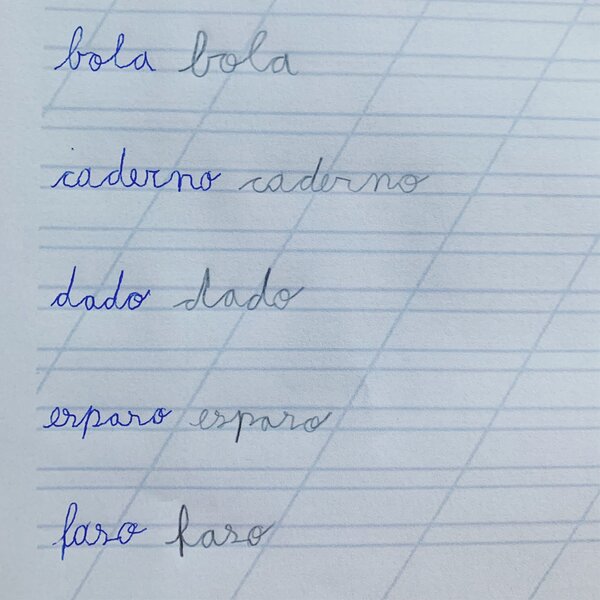 bola bola
caderno caderno
dado dado
esparo esparo
faso faso